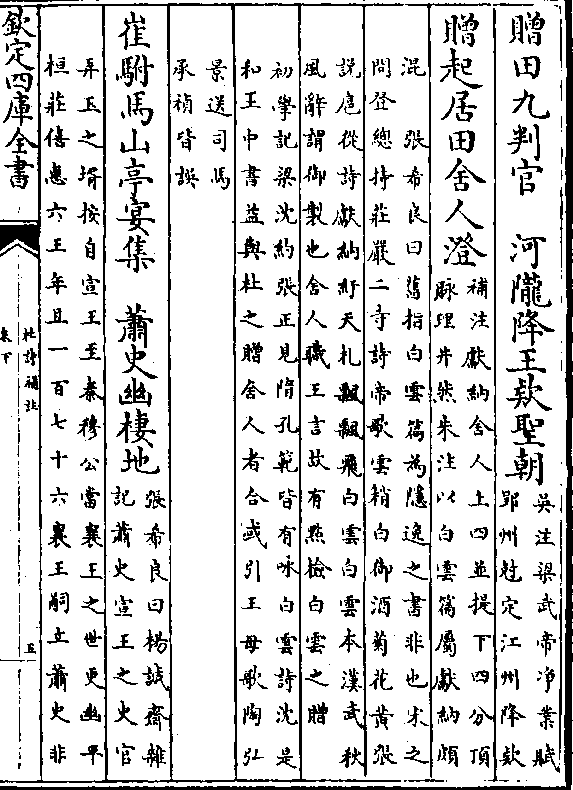 贈田九判官　河隴降王欵聖朝
吳注梁武帝净業賦
郢州尅定江州降欵
贈起居田舍人澄
補注獻納舍人上四並提下四分頂
脉理井然朱注以白雲篇屬獻納頗
混　張希良曰舊指白雲篇為隱逸之書非也宋之
問登總持莊嚴二寺詩帝歌雲稍白御酒菊花黄張
説扈從詩獻納紆天札飄飄飛白雲白雲本漢武秋
風辭謂御製也舍人職王言故有點檢白雲之贈
初學記梁沈約張正見隋孔範皆有咏白雲詩沈是
和王中書益與杜之贈舍人者合或引王母歌陶弘
景送司馬
承禎皆誤
崔駙馬山亭宴集　蕭史幽棲地
張希良曰楊誠齋雜
記蕭史宣王之史官
弄玉之壻按自宣王至秦穆公當襄王之世更幽平
桓莊僖惠六王年且一百七十六襄王嗣立蕭史非
欽定四庫全書
杜詩補註
卷下
五